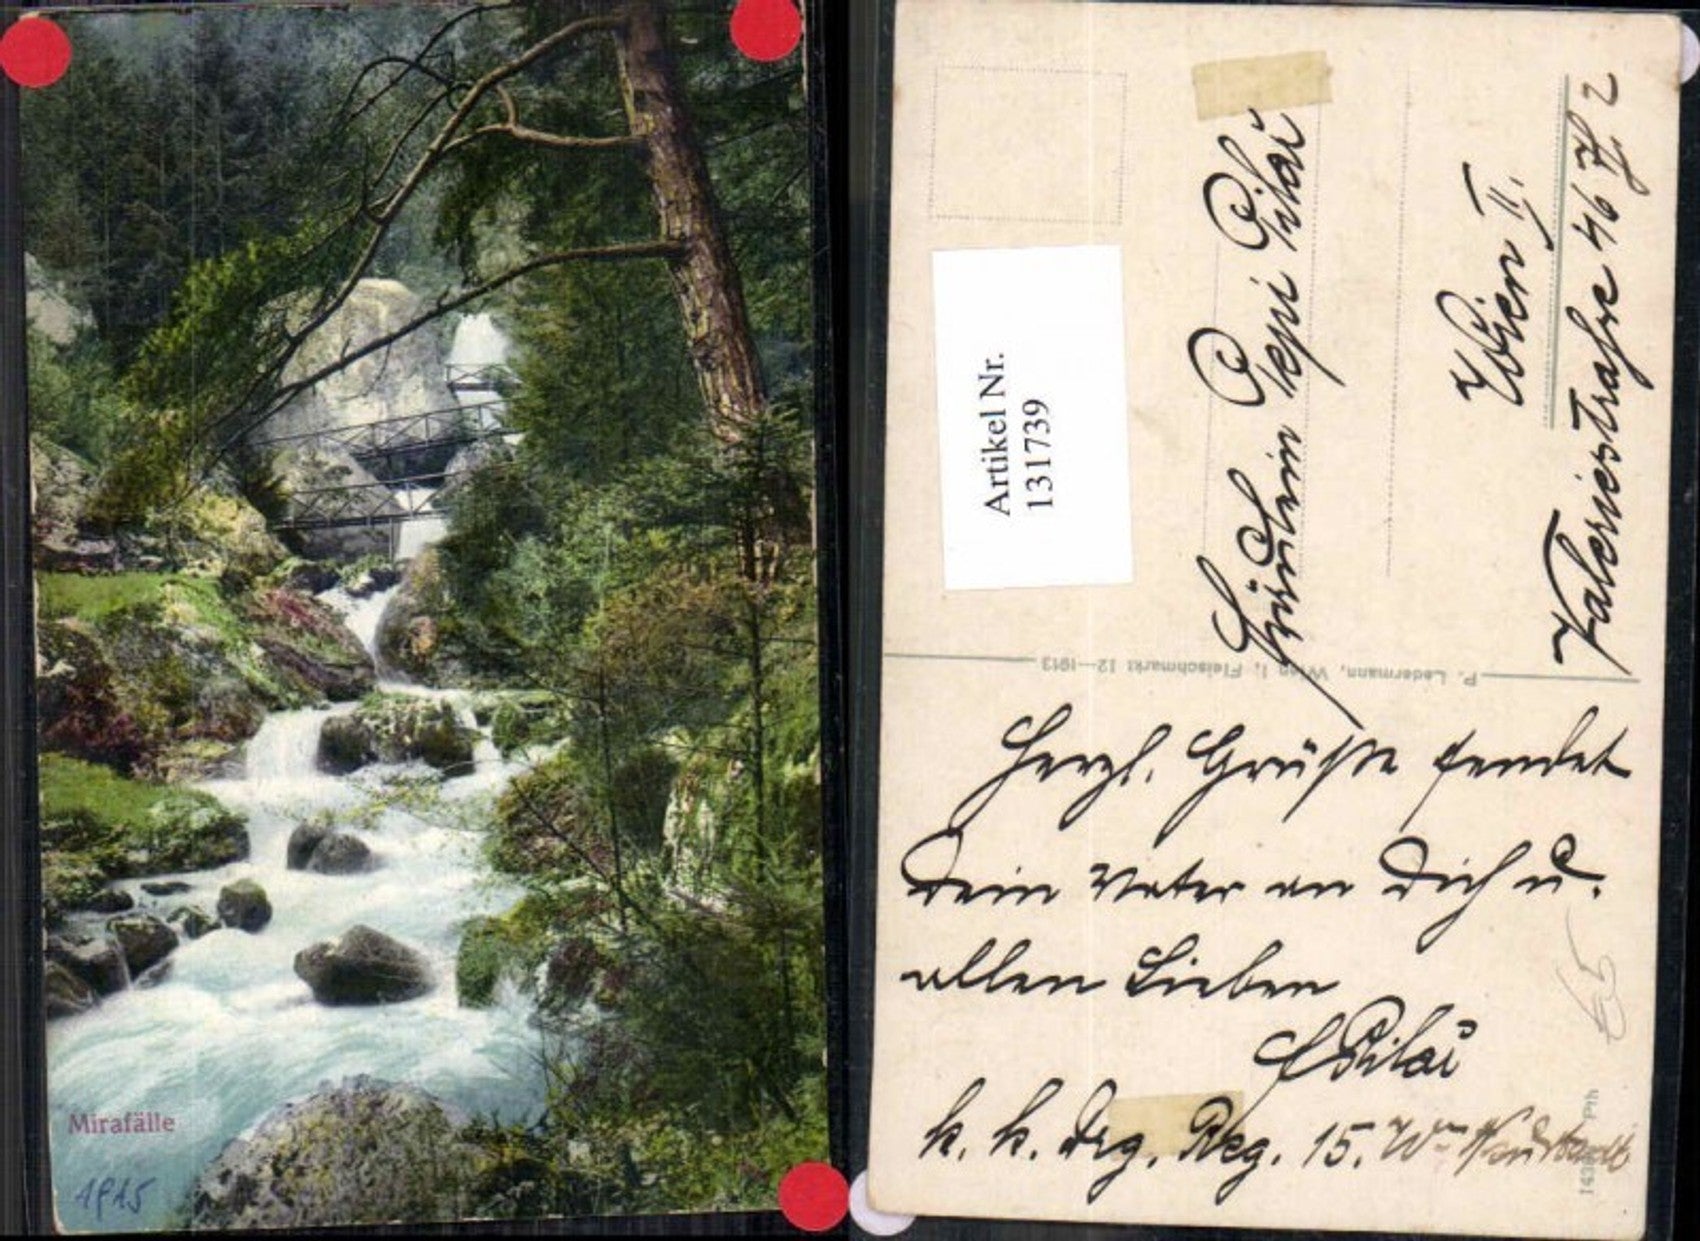 Mirafälle
1915
Artikel Nr.
1317739
Fräulein Pepi Pilař
Wien II.
Valeriestraße 46 2
P. Ledermann, Wien I, Fleischmarkt 12—1913
Herzl. Grüße sendet
Dein Vater an Dich u.
allen Lieben
Pilař
k. k. Drg. Reg. 15. Wr Neustadt
65